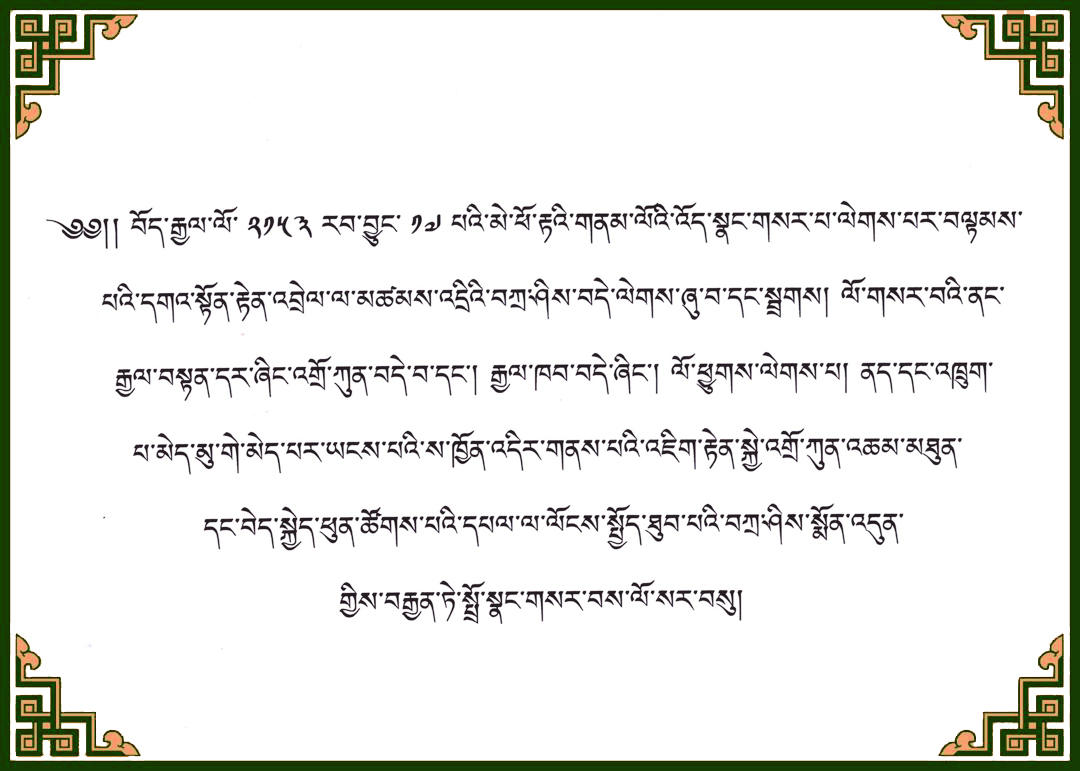 ༄༅།། བོད་རྒྱལ་ལོ་ ༢༡༥༣ རབ་བྱུང་ ༡༧ པའི་མེ་ཕོ་རྟའི་གནམ་ལོའི་འོད་སྣང་གསར་པ་ལེགས་པར་བལྟམས་
པའི་དགའ་སྟོན་རྟེན་འབྲེལ་ལ་མཚམས་འདྲིའི་བཀྲ་ཤིས་བདེ་ལེགས་ཞུ་བ་དང་སྦྲགས། ལོ་གསར་བའི་ནང་
རྒྱལ་བསྟན་དར་ཞིང་འགྲོ་ཀུན་བདེ་བ་དང་། རྒྱལ་ཁབ་བདེ་ཞིང་། ལོ་ཕྱུགས་ལེགས་པ། ནད་དང་འཁྲུག་
པ་མེད་མུ་གེ་མེད་པར་ཡངས་པའི་ས་ཁྱོན་འདིར་གནས་པའི་འཇིག་རྟེན་སྐྱེ་འགྲོ་ཀུན་འཆམ་མཐུན་
དང་བེད་སྐྱེད་ཕུན་ཚོགས་པའི་དཔལ་ལ་ལོངས་སྤྱོད་ཐུབ་པའི་བཀྲ་ཤིས་སྨོན་འདུན་
གྱིས་བརྒྱན་ཏེ་སྤྲོ་སྣང་གསར་བས་ལོ་སར་བསུ།